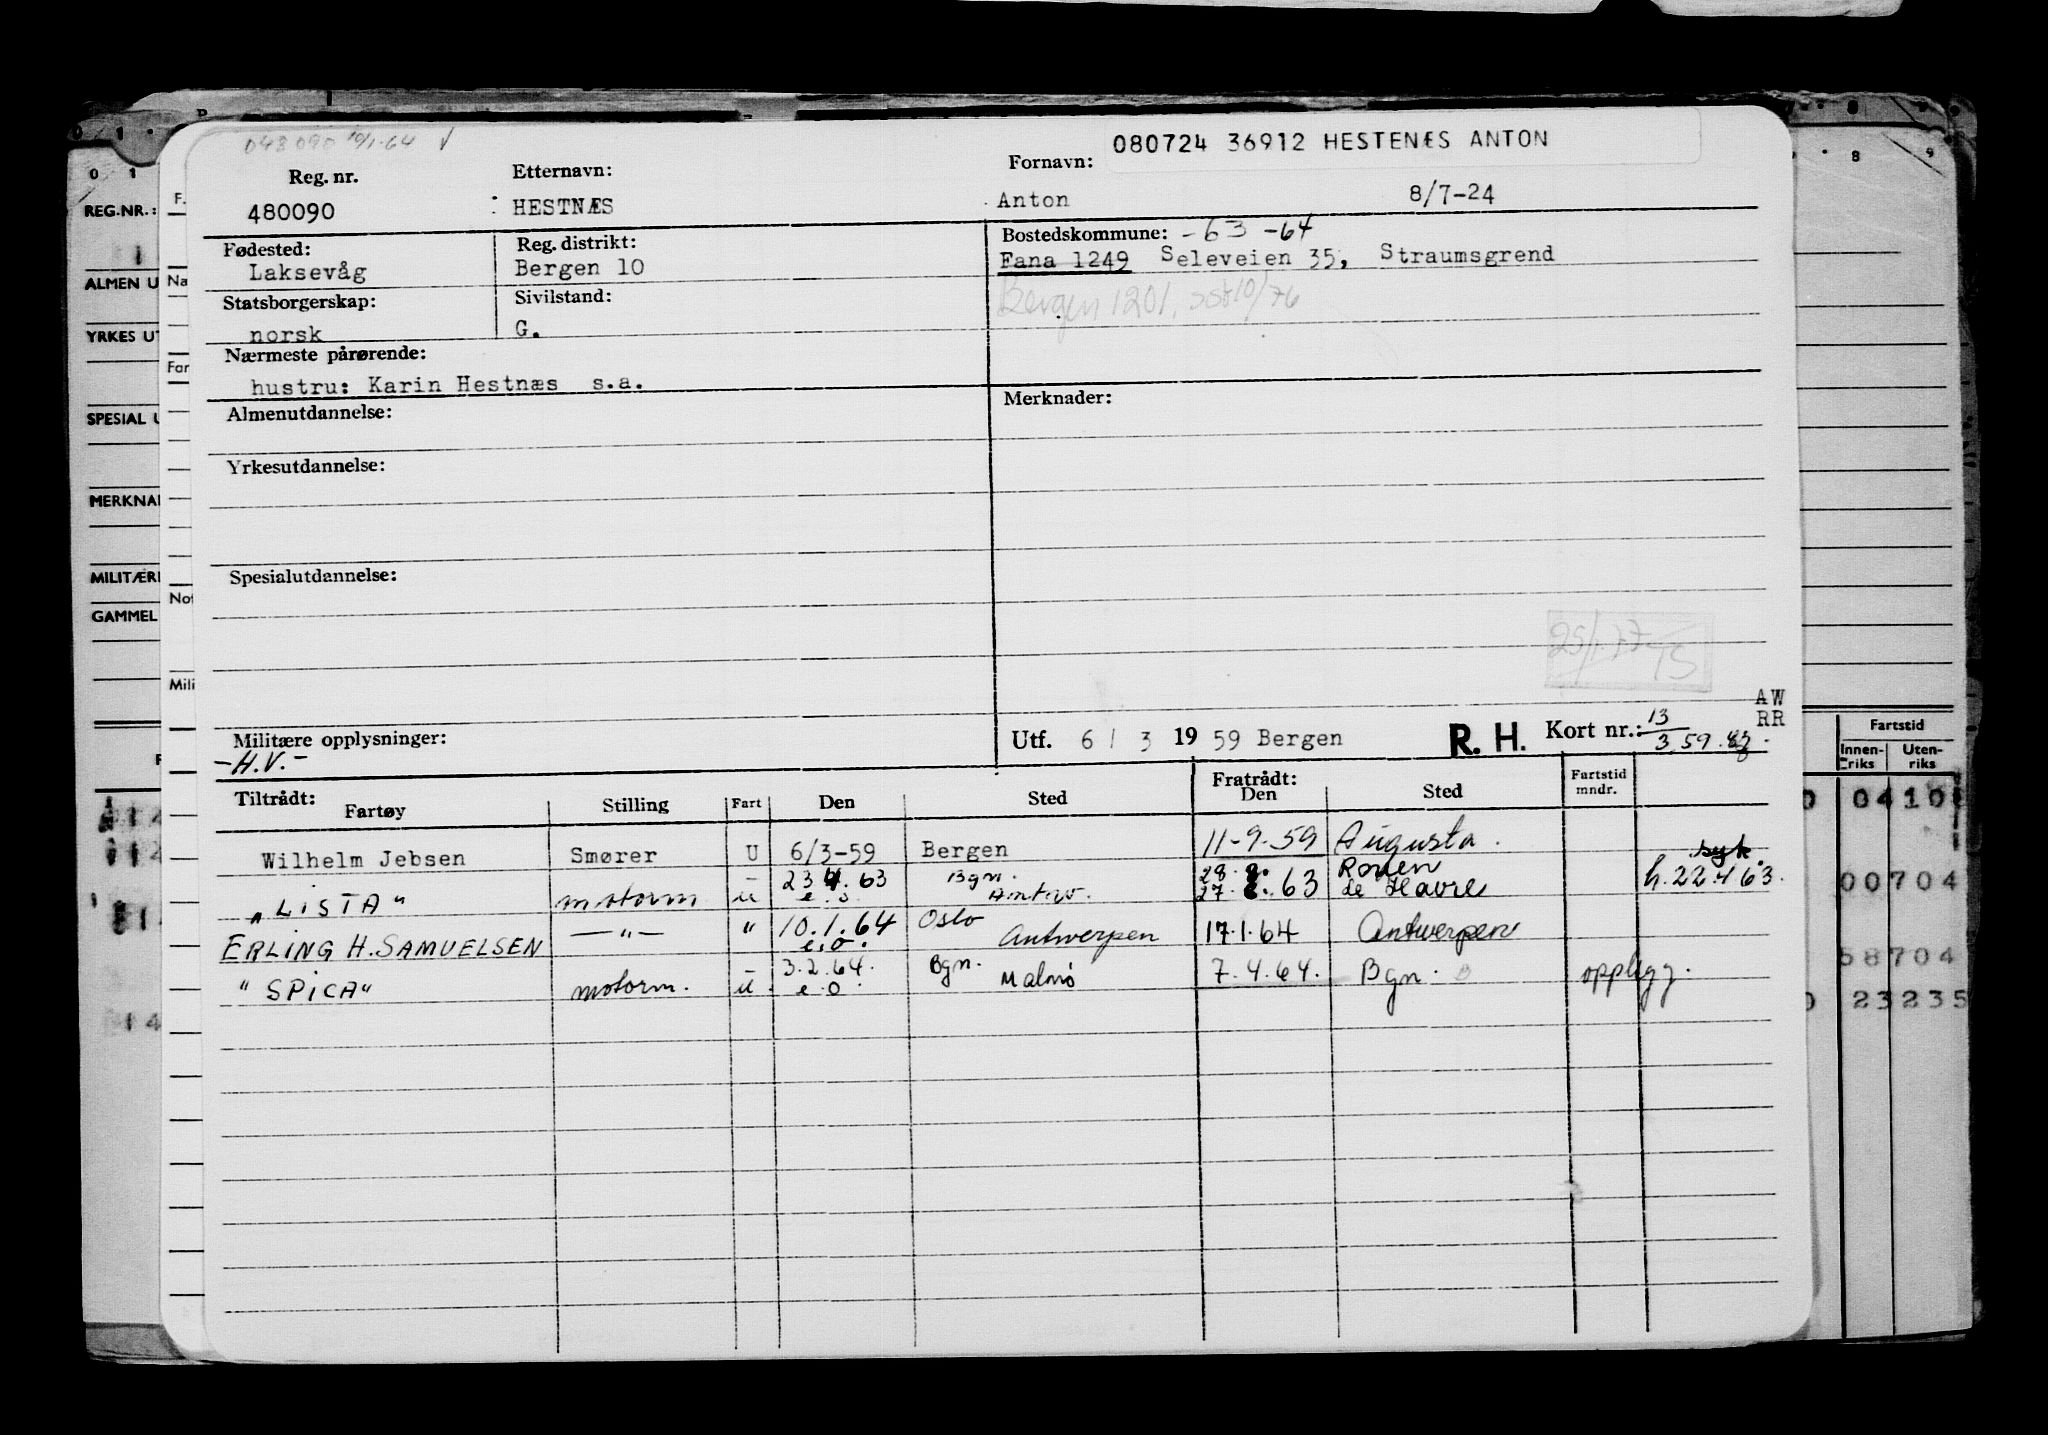 048090 10/1-64 √
080724 36912 HESTENÆS ANTON
Reg. nr. Etternavn: Fornavn:
480090 HESTNÆS Anton 8/7-24
Fødested: Reg. distrikt: Bostedskommune: -63 -64
Laksevåg Bergen 10 Fana 1249 Seleveien 35, Straumsgrend
Statsborgerskap: Sivilstand: Bergen 1201, 10/76
norsk G.
Nærmeste pårørende:
hustru: Karin Hestnæs s.a.
Almenutdannelse: Merknader:
Yrkesutdannelse:
Spesialutdannelse:
25/1.77 TS
AW
RR
Militære opplysninger: Utf. 6 / 3 19 59 Bergen R. H. Kort nr.: 13
-H.V.- 3.59.
Tiltrådt: Fartøy Stilling Fart Den Sted Fratrådt: Den Sted Fartstid mndr.
Wilhelm Jebsen Smører U 6/3-59 Bergen 11-9-59 Augusta. syk
23 4. 63 Bgn. 28. 8. Rouen
"LISTA" motorm u Antw. 27. 8. 63 le Havre h. 22.4 63.
10.1.64 Oslo
ERLING H. SAMUELSEN —"— " e.o. Antwerpen 17.1.64 Antwerpen
3.2.64. Bgn.
"SPICA" motorm. u. e.o. Malmö 7.4.64. Bgn. opplegg.
REG.NR.:
ALMEN U
YRKES UT
SPESIAL U
MERKNA
MILITÆRE
GAMMEL
F.
Na
Far
Not
Mili
0 1
8 9
Fartstid
Innen-riks Uten-riks
0 04 10
00 704
58 704
0 23 235